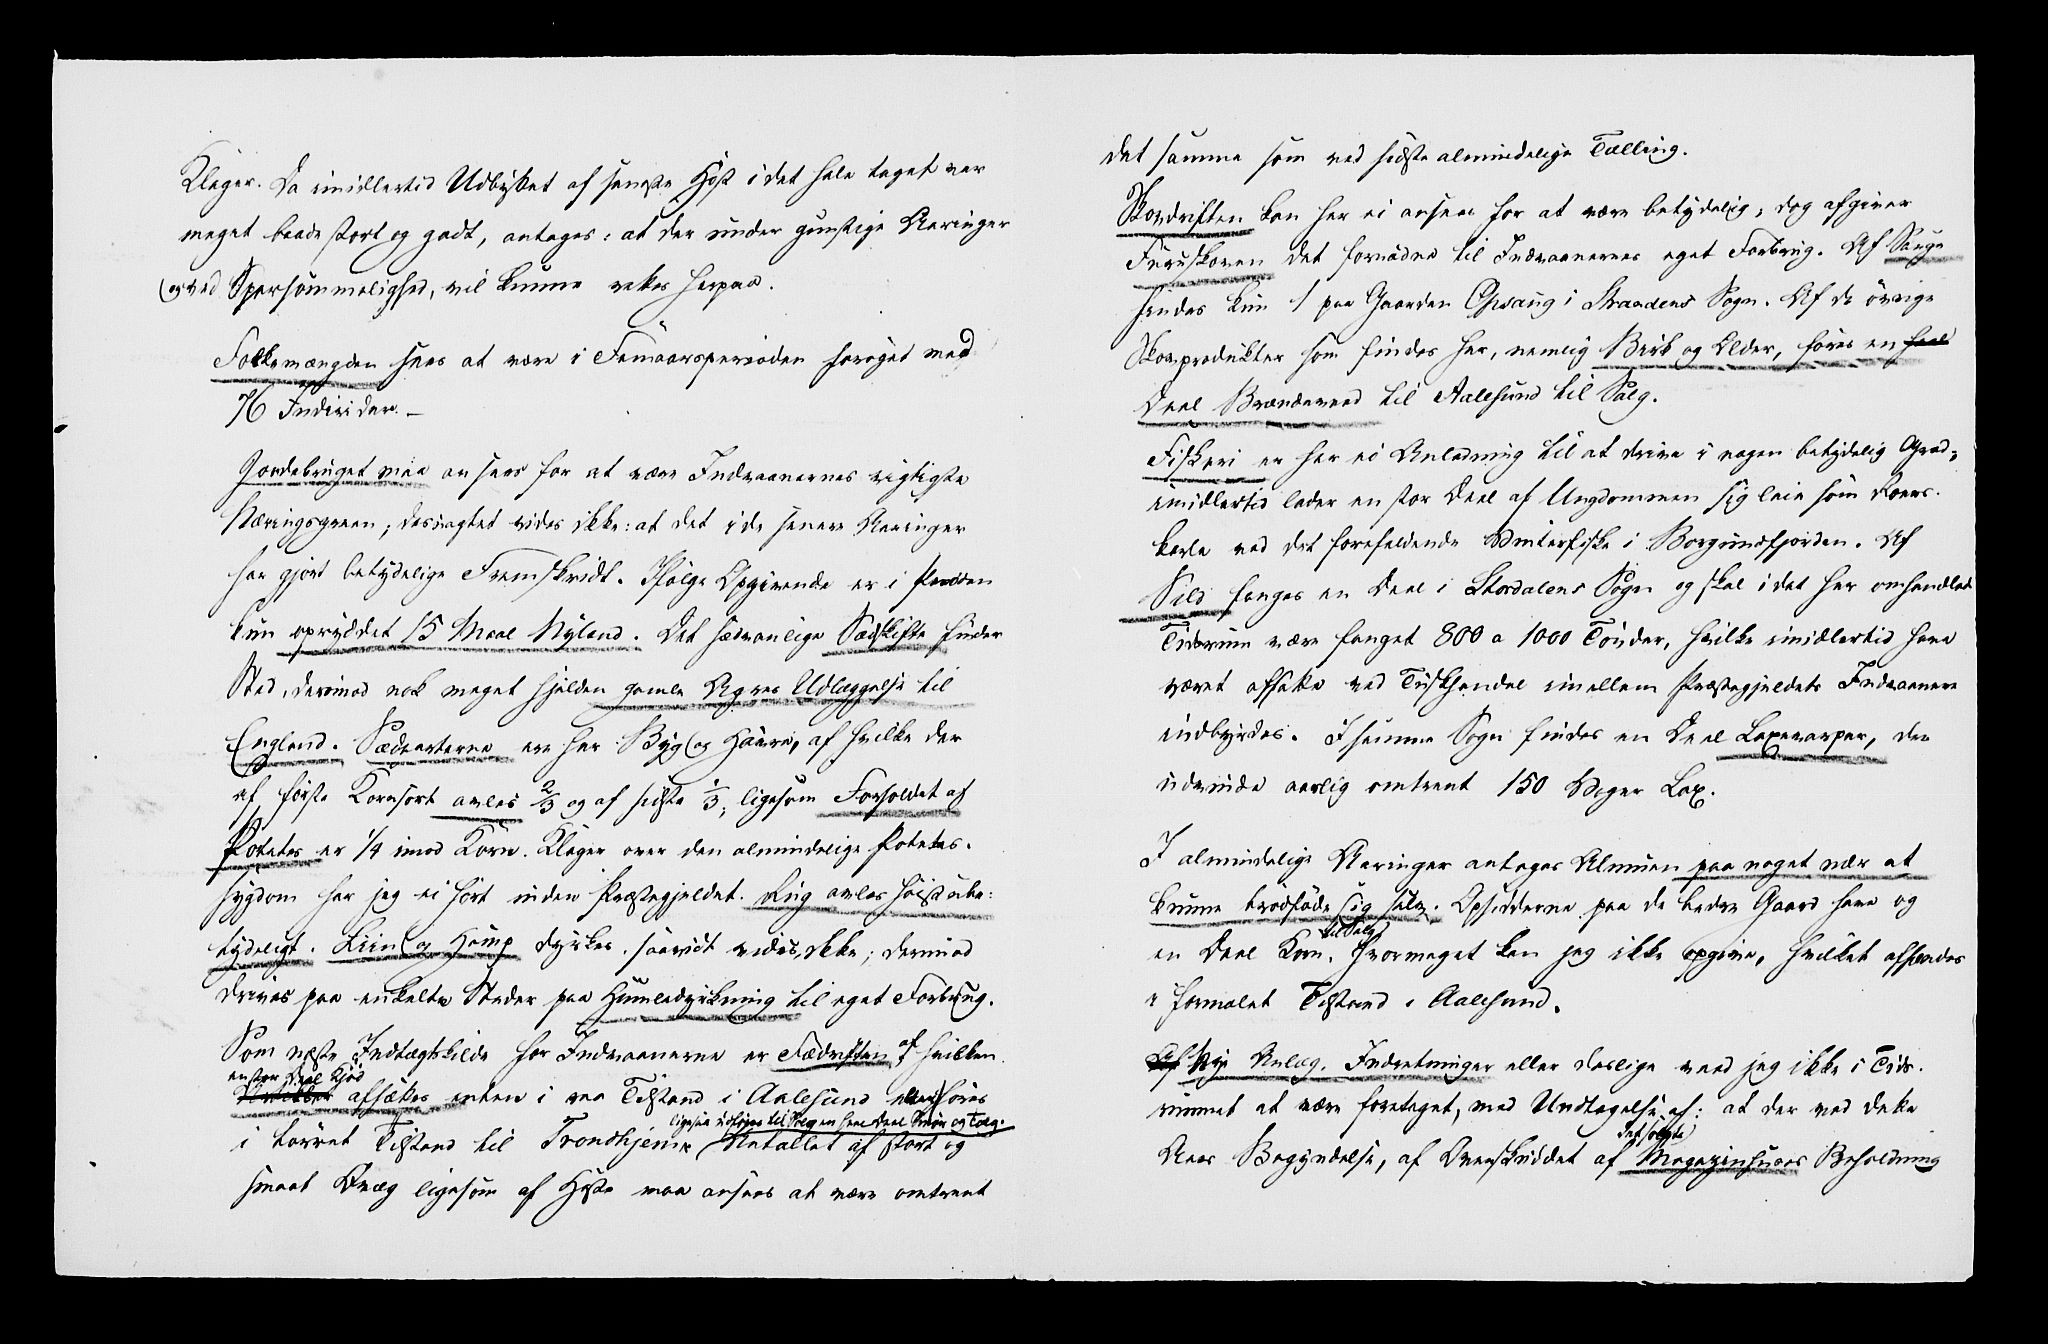 Klager. Da imidlertid Udbyttet af seneste Høst i det hele taget var
meget baade stort og godt, antages: at der under gunstige Aaringer
og ved Sparsommelighed, vil kunne rettes herpaa.
Folkemængden sees at være i Femaarsperioden forøget med
76 Individer. –
Jordebruget maa ansees for at være Indvaanernes vigtigste
Næringsgreen; desuagtet vides ikke: at det i de senere Aaringer
har gjort betydelige Fremskridt. Ifølge Opgivende er i Perioden
kun opryddet 15 Maal Nyland. Det sædvanlige Sædskifte finder
Sted, derimod nok meget sjelden gamle Agres Udlæggelse til
England. Sædearterne ere her Byg og Havre, af hvilke der
af første Kornsort avles 2/3 og af sidste 1/3, ligesom Forholdet af
Potetes er 1/4 imod Korn. Klager over den almindelige Potetes-
sygdom har jeg ei hørt inden Præstegjeldet. Rug avles høist ube-
tydeligt. Liin og Hamp dyrkes, saavidt vides, ikke; derimod
drives paa enkelte Steder paa Humledyrkning til eget Forbrug.
Som næste Indtægtskilde for Indvaanerne er Fædriften af hvilken
en stor Deel Kjød
afsættes enten i raa Tilstand i Aalesund eller føres
ligesaa udføres til Salg en heel Deel Smør og Talg.
i tørret Tilstand til Trondhjem. Antallet af stort og
smaat Qvæg ligesom af Heste maa ansees at være omtrent
det samme som ved sidste almindelige Tælling.
Skovdriften kan her ei ansees for at være betydelig, dog afgiver
Furuskoven det fornødne til Indvaanernes eget Forbrug. Af Sauge
findes kun 1 paa Gaarden Opsaug i Strandens Sogn. Af de øvrige
Skovprodukter som findes her, nemlig Birk og Older, føres en heel
Deel Brændeved til Aalesund til Salg.
Fiskeri er her ei Anledning til at drive i nogen betydelig Grad,
imidlertid lader en stor Deel af Ungdommen sig leie som Roers-
karle ved det forefaldende Vinterfiske i Borgundfjorden. Af
Sild fanges en Deel i Stordalens Sogn og skal i det her omhandlede
Tidsrum være fanget 800 a 1000 Tønder, hvilke imidlertid have
været afsatte ved Tuskhandel imellem Præstegjeldets Indvaanere
indbyrdes. I samme Sogn findes en Deel Laxevarper, der
udvinde aarlig omtrent 150 Voger Lax.
I almindelige Aaringer antages Almuen paa noget nær at
kunne brødføde sig selv. Opsidderne paa de bedre Gaard have og
til Salgs
en Deel Korn, hvormeget kan jeg ikke opgive, hvilket afsendes
i formalet Tilstand i Aalesund.
Af Nye Anlæg, Indretninger eller deslige veed jeg ikke i Tids-
rummet at være foretaget, med Undtagelse af: at der ved dette
Aars Begyndelse, af Overskuddet af Magazinhuses Beholdning